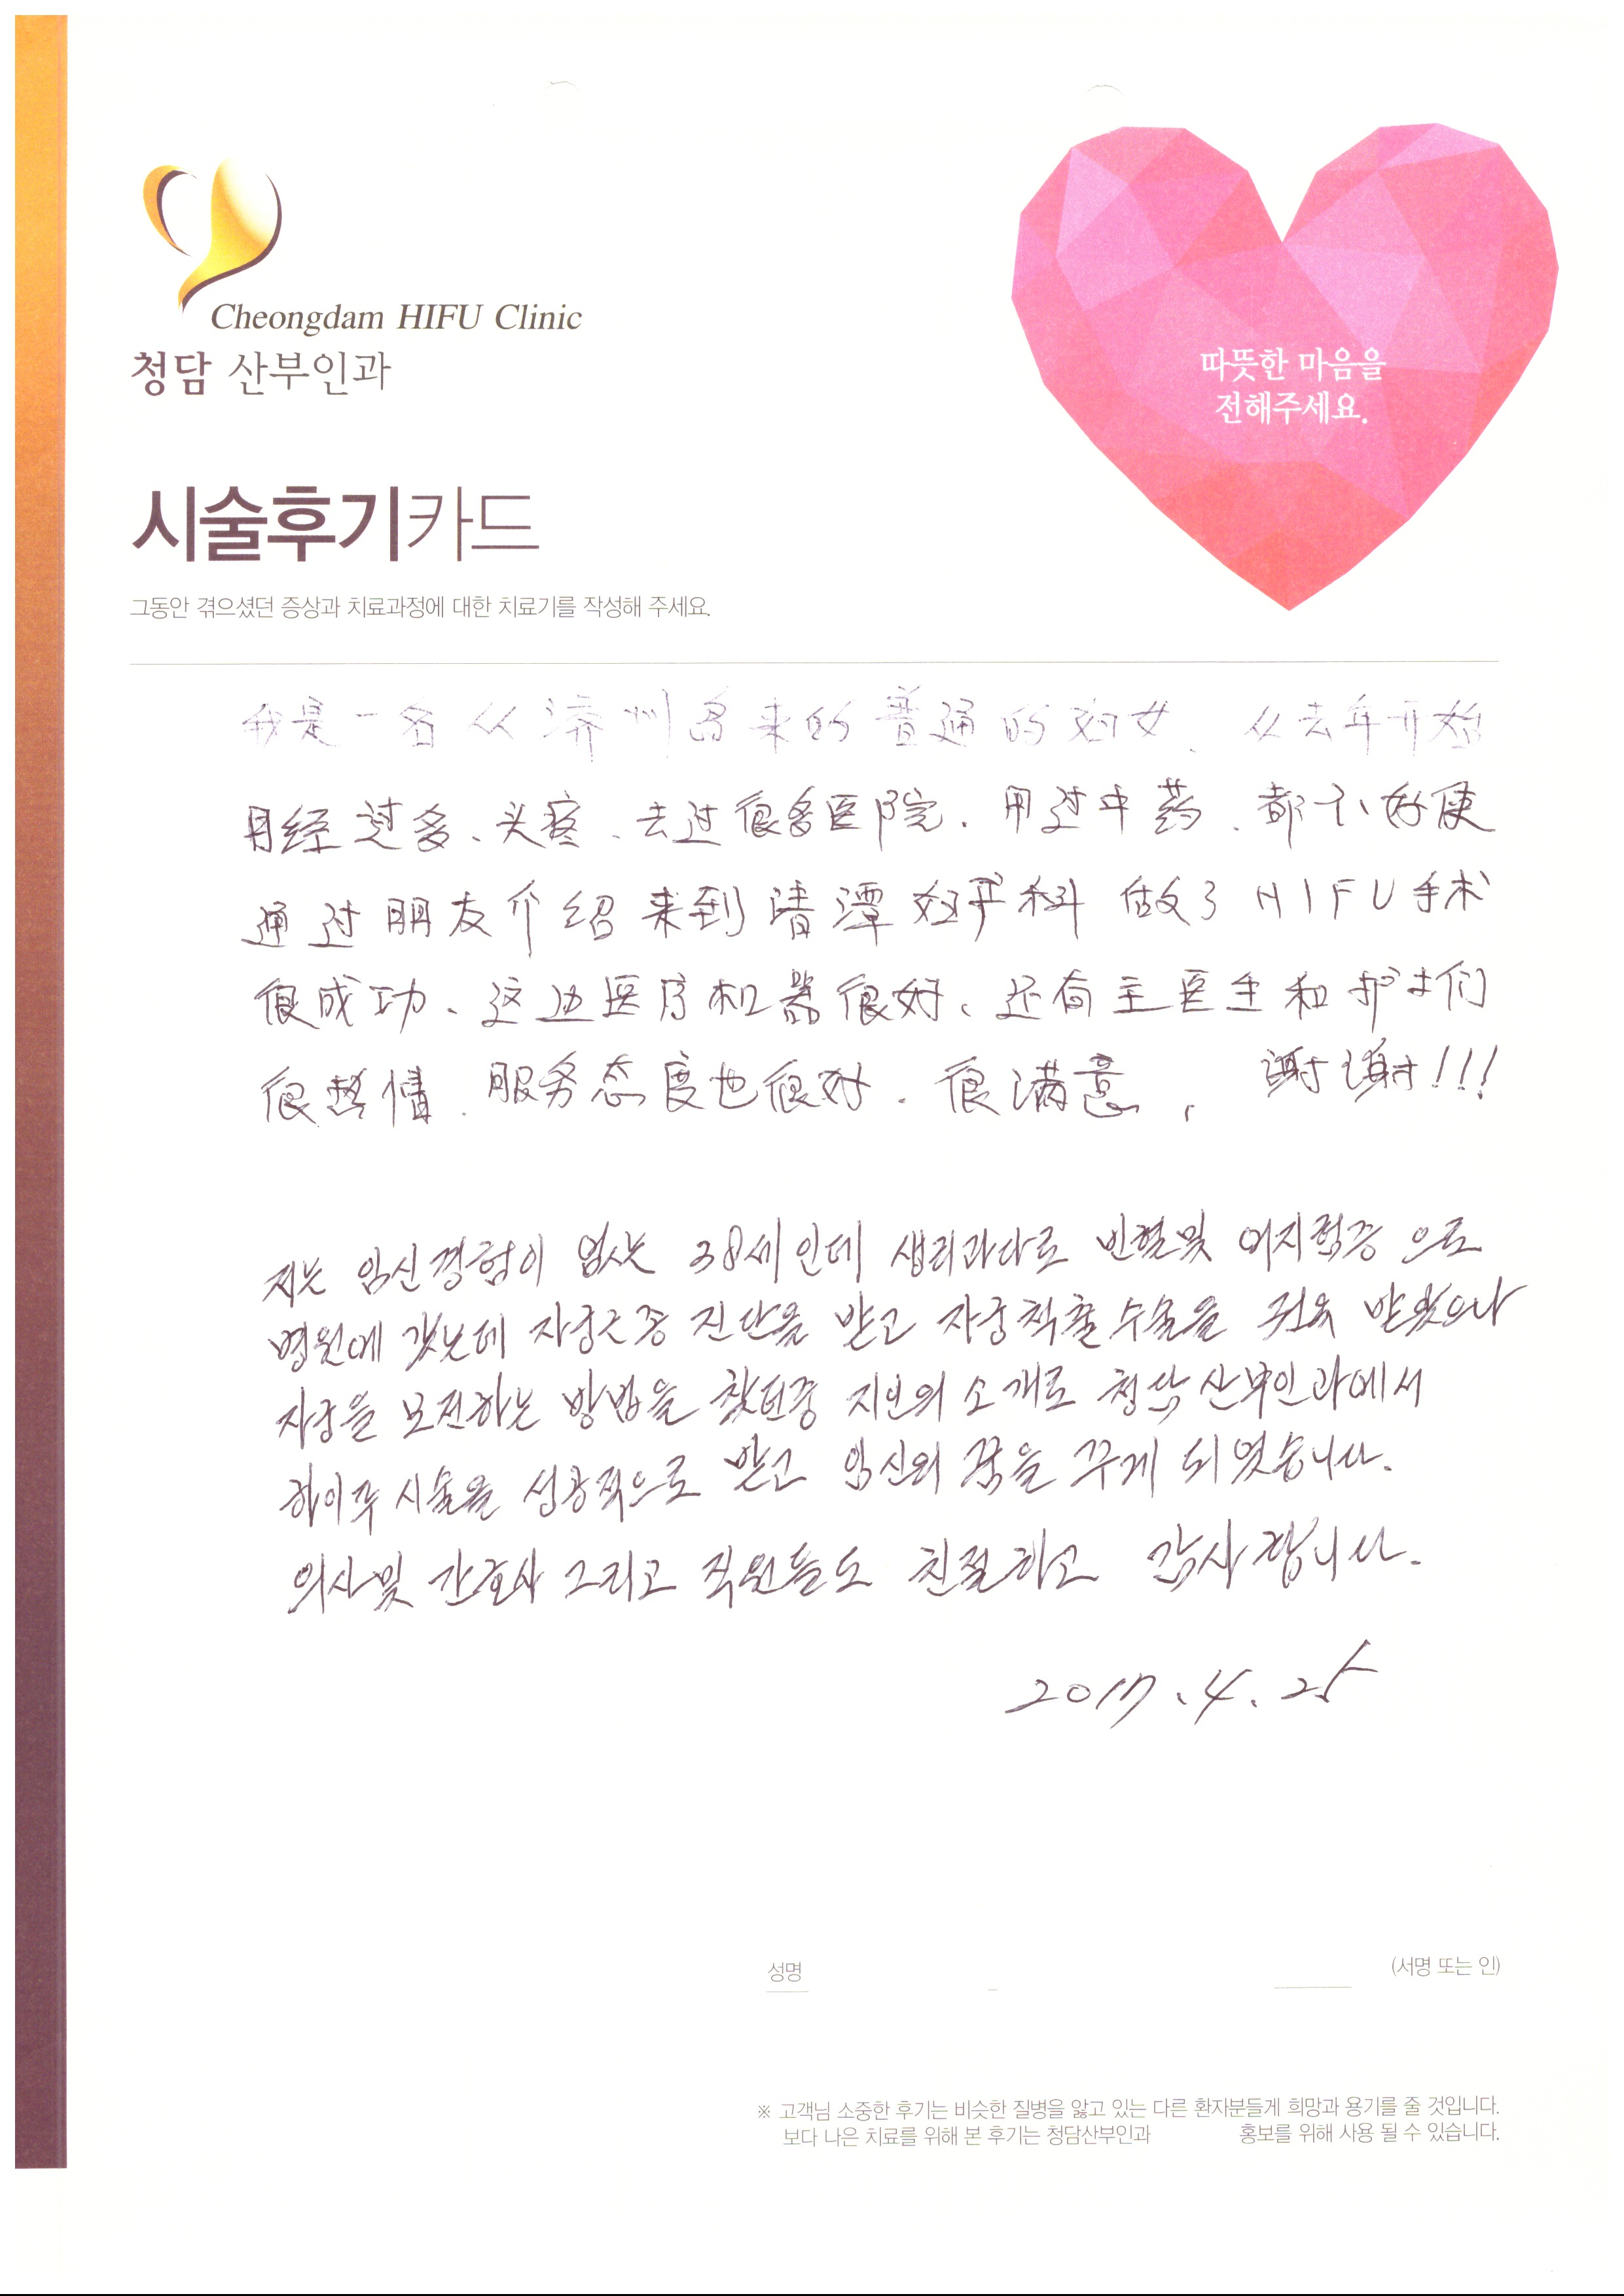 Cheongdam HIFU Clinic
청담 산부인과
따뜻한 마음을
전해주세요.
시술후기카드
그동안 겪으셨던 증상과 치료과정에 대한 치료기를 작성해 주세요.
我是一名从济州岛来的普通的妇女、从去年开始
月经过多、头疼、去过很多医院、用过中药、都不好使
通过朋友介绍来到清潭妇产科 做了 HIFU手术
很成功、这边医疗机器很好、还有主医生和护士们
很热情、服务态度也很好、很满意, 谢谢!!!
저는 임신경험이 없는 38세인데 생리과다로 빈혈및 어지럼증 으로
병원에 갔는데 자궁근종 진단을 받고 자궁적출수술을 권유 받았으나
자궁을 보전하는 방법을 찾던중 지인의 소개로 청담산부인과에서
하이푸 시술을 성공적으로 받고 임신의 꿈을 꾸게 되였습니다.
의사및 간호사 그리고 직원들도 친절하고 감사합니다.
2017.4.25
성명
(서명 또는 인)
※ 고객님 소중한 후기는 비슷한 질병을 앓고 있는 다른 환자분들게 희망과 용기를 줄 것입니다.
보다 나은 치료를 위해 본 후기는 청담산부인과 홍보를 위해 사용 될 수 있습니다.